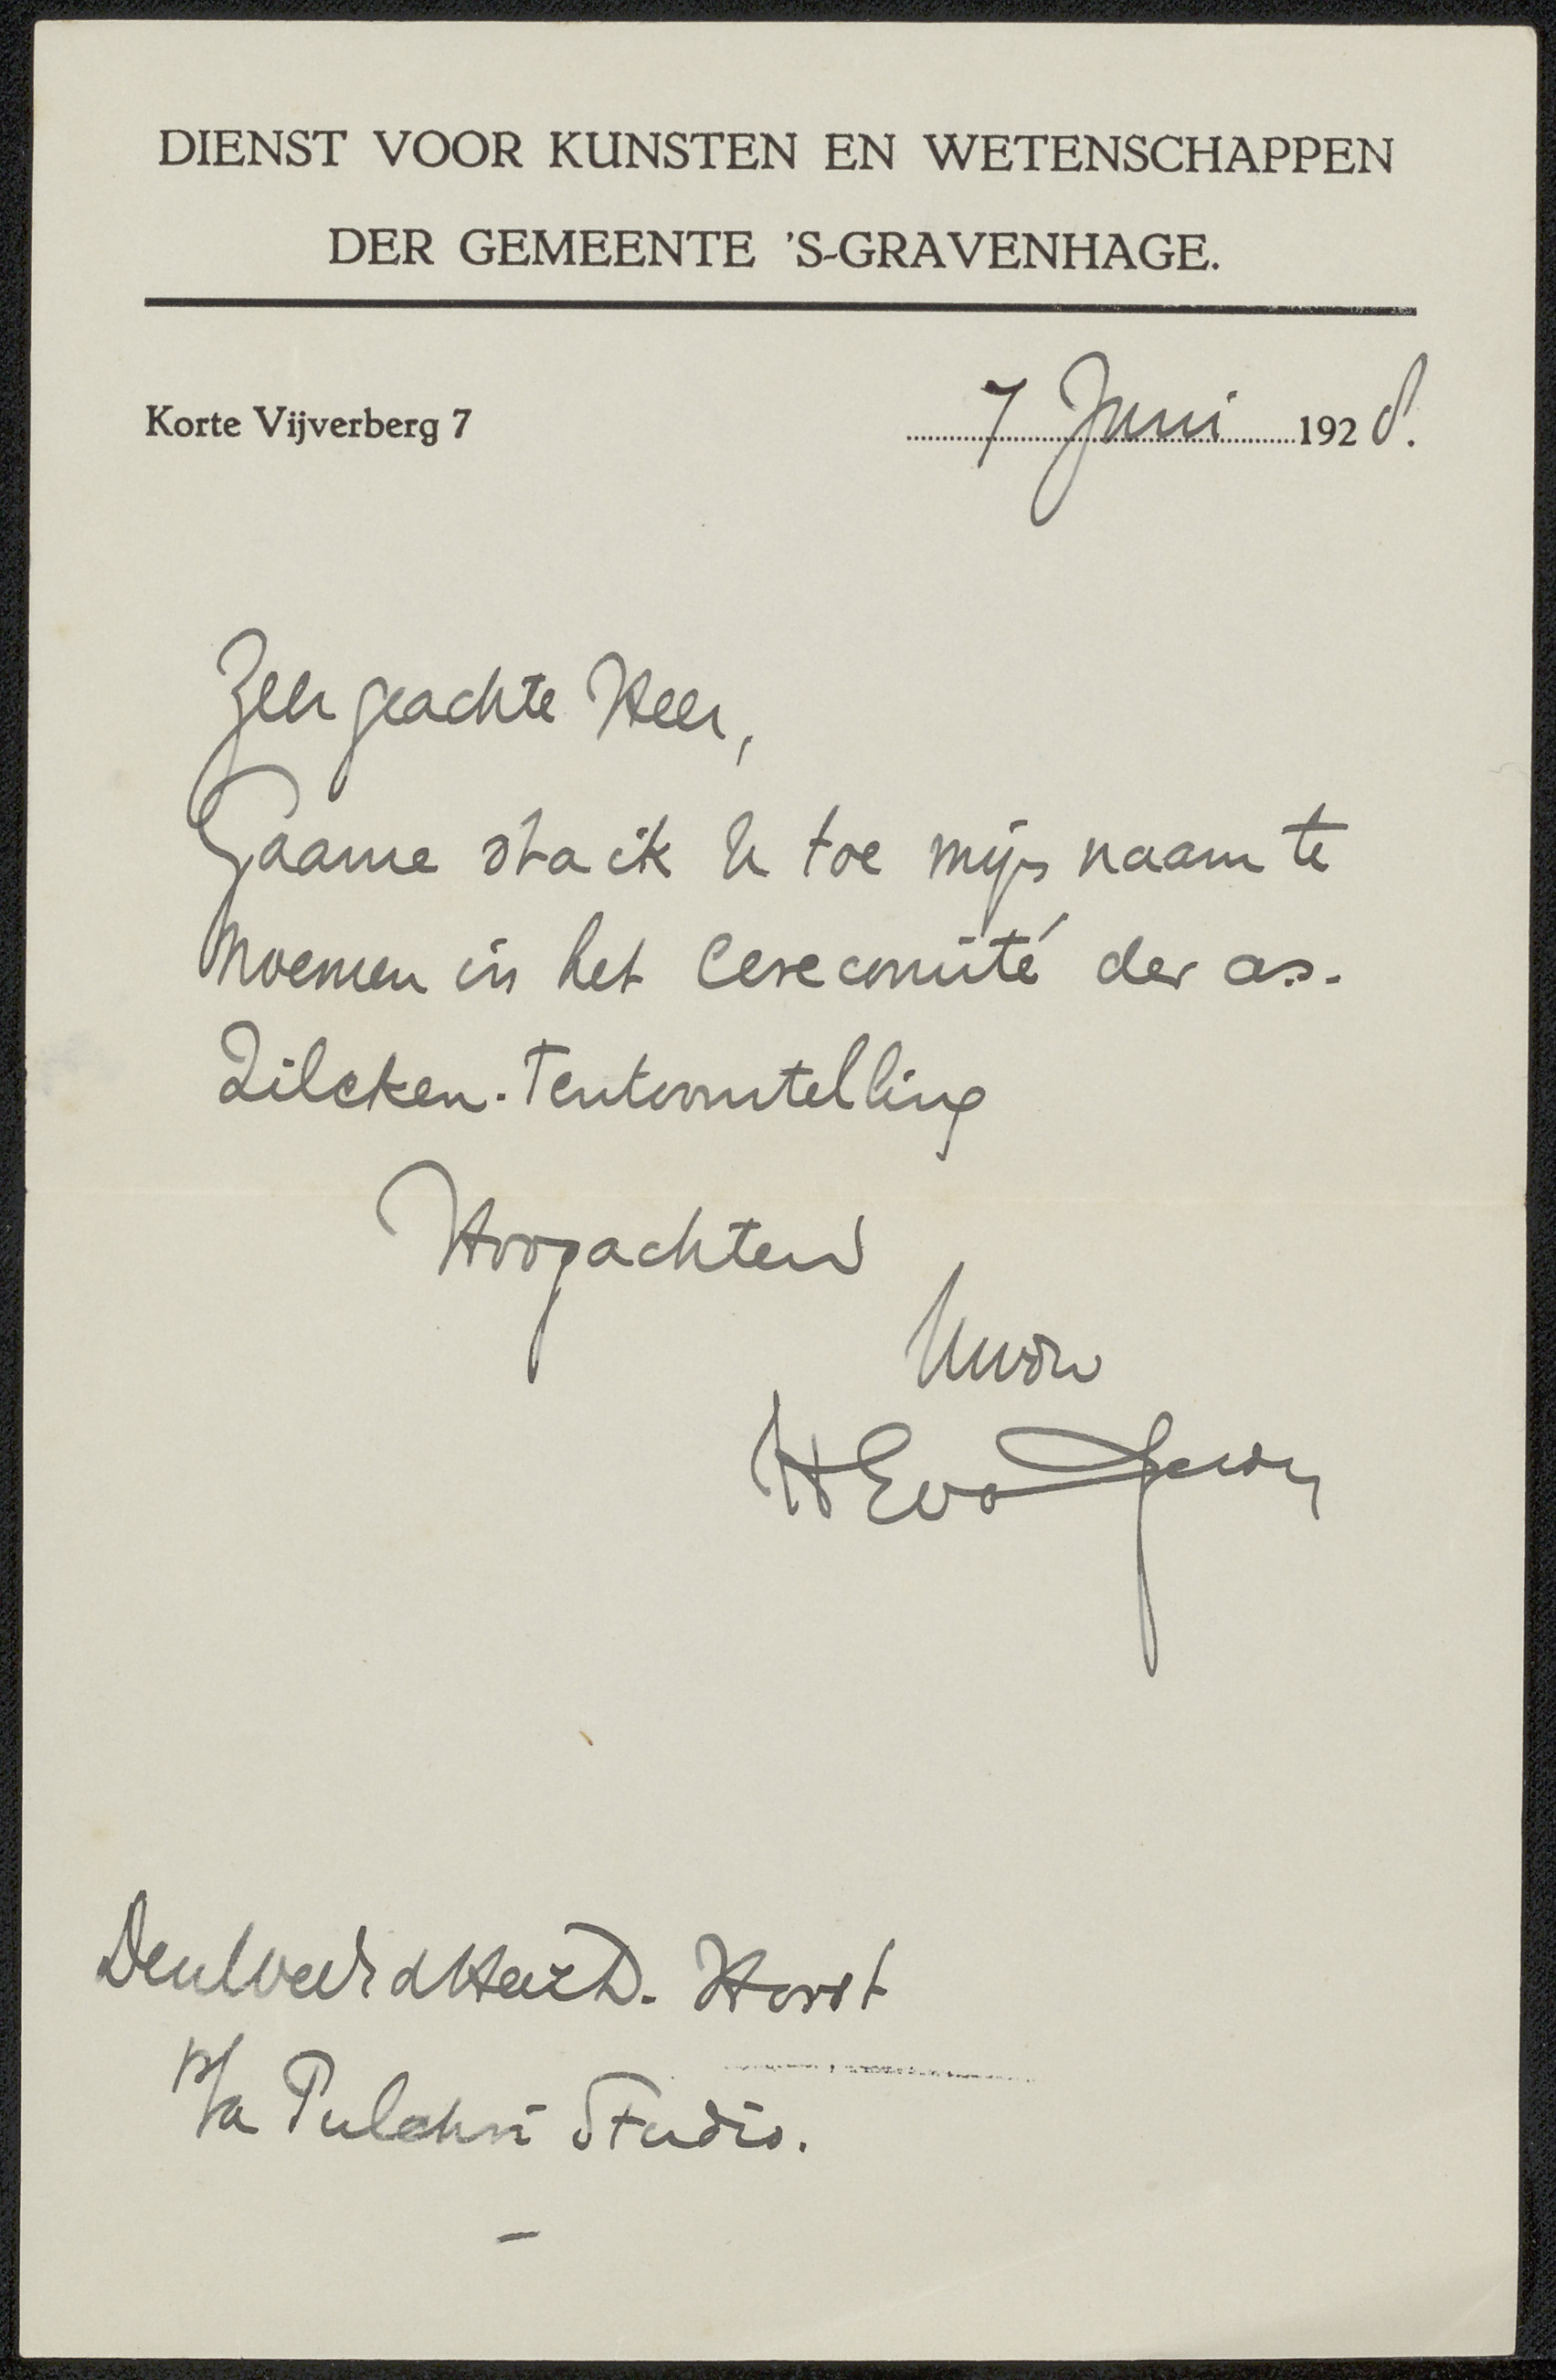 DIENST VOOR KUNSTEN EN WETENSCHAPPEN
DER GEMEENTE 'S-GRAVENHAGE.
Korte Vijverberg 7
7 Juni 1928.
Zeer geachte Heer,
Gaarne sta ik U toe mijn naam te
noemen in het Eerecomité der as.
Zilcken-Tentoonstelling
Hoogachtend
Uwdw
HEvGelder
Den Weledelen Heer D. Horst
p/a Pulchri Studio.